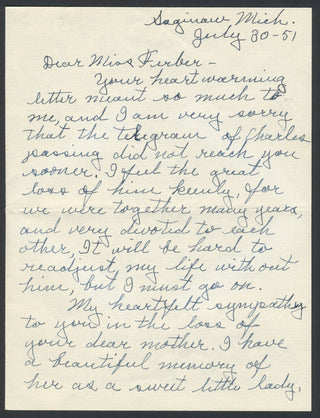 Saginaw Mich.
July 30-51
Dear Miss Ferber -
Your heart warming
letter meant so much to
me, and I am very sorry
that the telegram of Charles
passing did not reach you
sooner. I feel the great
loss of him keenly, for
we were together many years,
and very devoted to each
other, It will be hard to
readjust my life without
him, but I must go on.
My heartfelt sympathy
to you in the loss of
your dear mother. I have
a beautiful memory of
her as a sweet little lady,